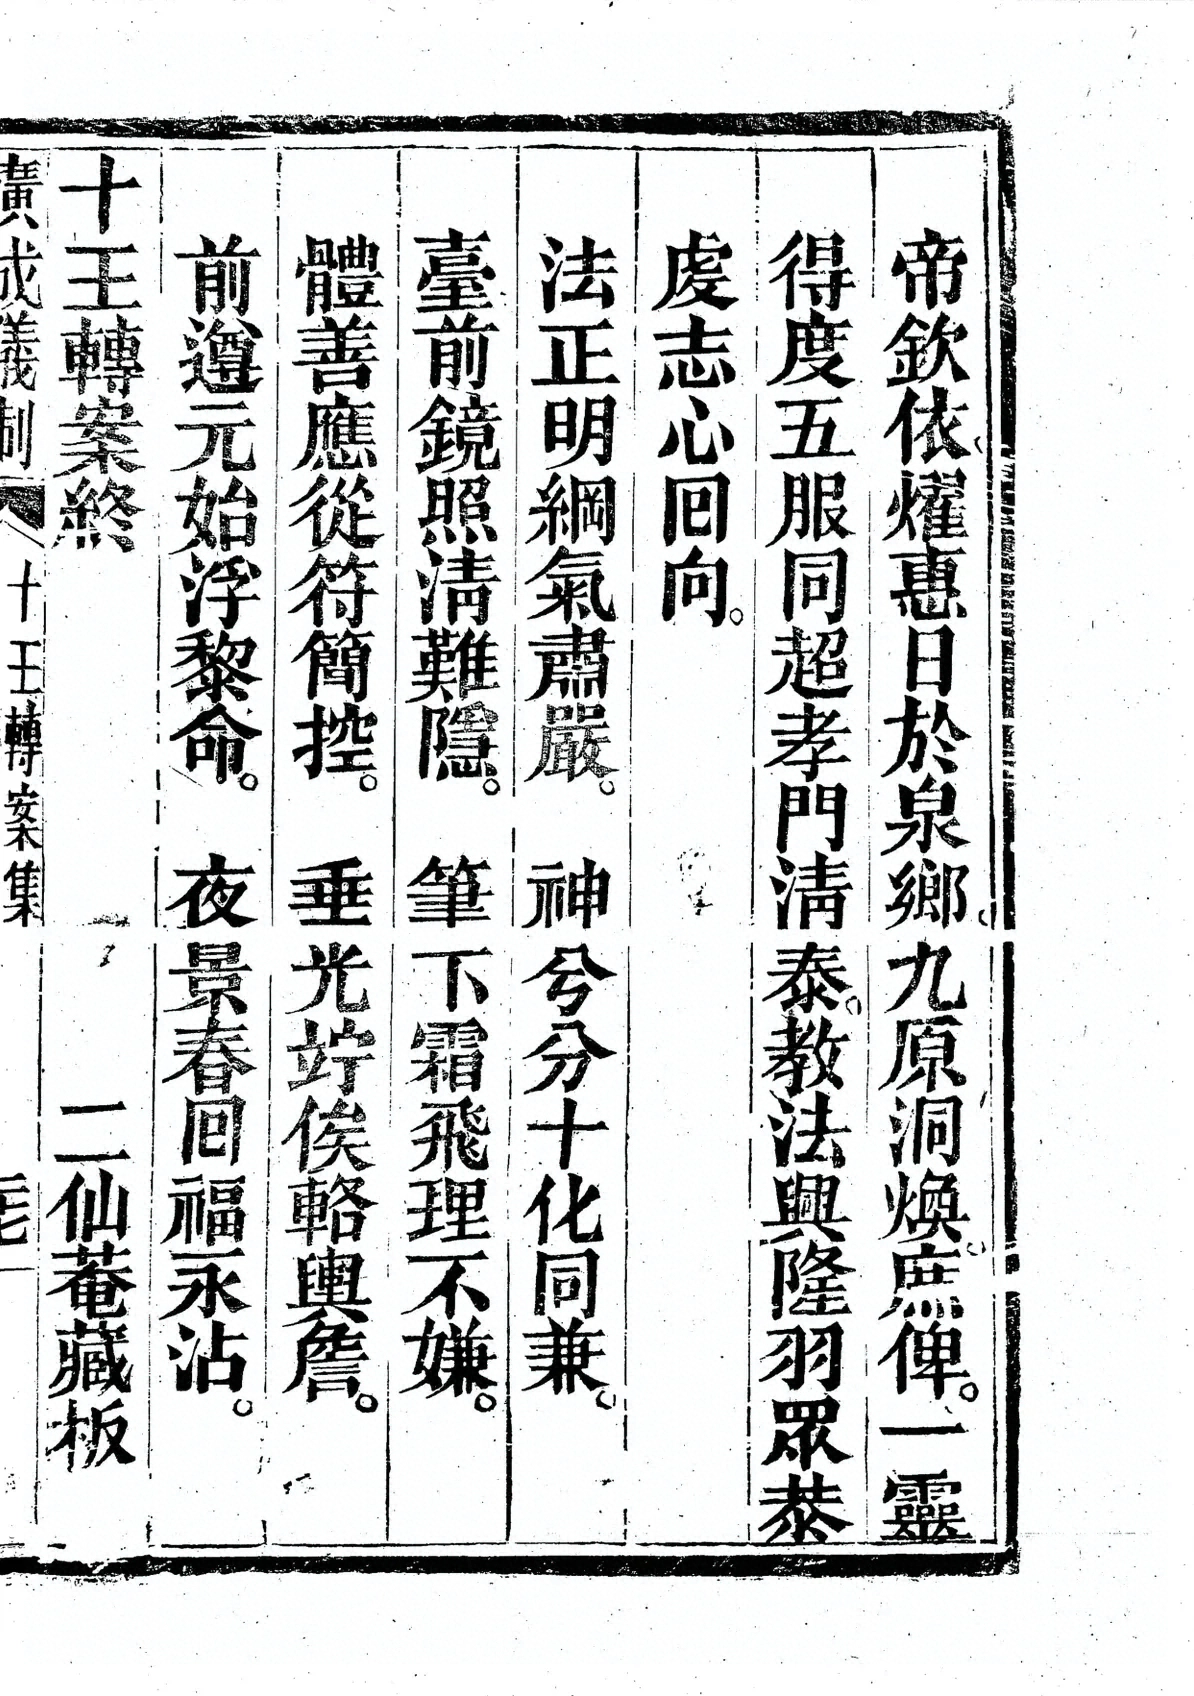 帝欽依燿惠日於泉鄉。九原洞煥庶俾。一靈
得度五服同超孝門清泰。教法興隆羽眾恭
虔志心回向。
法正明綱氣肅嚴。　神兮分十化同兼。
臺前鏡照清難隱。　筆下霜飛理不嫌。
體善應從符簡控。　垂光竚俟輅輿詹。
前遵元始浮黎命。　夜景春回福永沾。
十王轉案終　二仙菴藏板
廣成儀制　十王轉案集